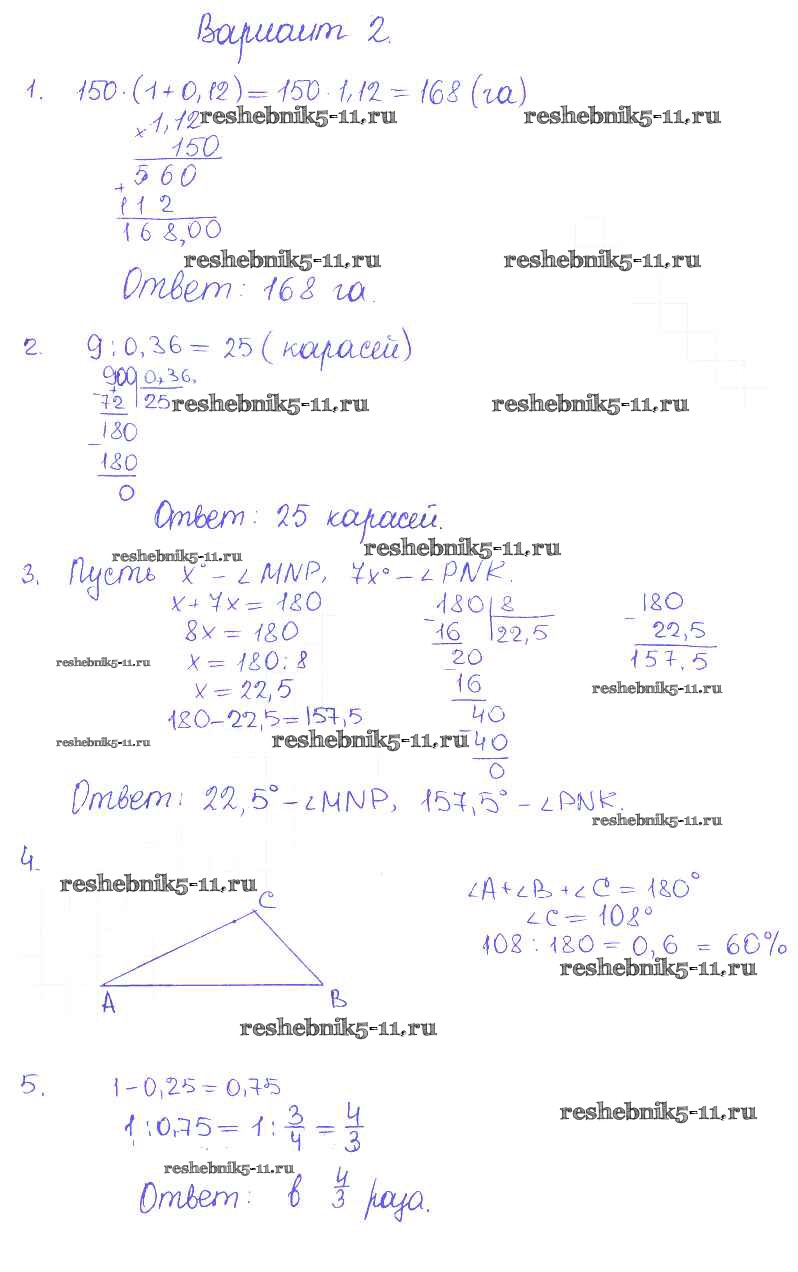 Вариант 2.
1. 150·(1+0,12)=150·1,12=168(га)
×1,12 reshebnik5-11.ru reshebnik5-11.ru
150
+560
112
168,00
reshebnik5-11.ru reshebnik5-11.ru
Ответ: 168 га.
2. 9:0,36=25(карасей)
900 0,36.
-72 25 reshebnik5-11.ru reshebnik5-11.ru
-180
180
0
Ответ: 25 карасей.
reshebnik5-11.ru reshebnik5-11.ru
3. Пусть x°-∠MNP, 7x°-∠PNK.
x+7x=180 180 8 180
8x=180 -16 22,5 -22,5
reshebnik5-11.ru x=180:8 20 157,5
x=22,5 16 reshebnik5-11.ru
180-22,5=157,5 40
reshebnik5-11.ru reshebnik5-11.ru -40
0
Ответ: 22,5°-∠MNP, 157,5°-∠PNK.
reshebnik5-11.ru
4.
reshebnik5-11.ru ∠A+∠B+∠C=180°
C ∠C=108°
108:180=0,6=60%
reshebnik5-11.ru
A B
reshebnik5-11.ru
5. 1-0,25=0,75
reshebnik5-11.ru
1:0,75=1:3/4=4/3
reshebnik5-11.ru
Ответ: в 4/3 раза.